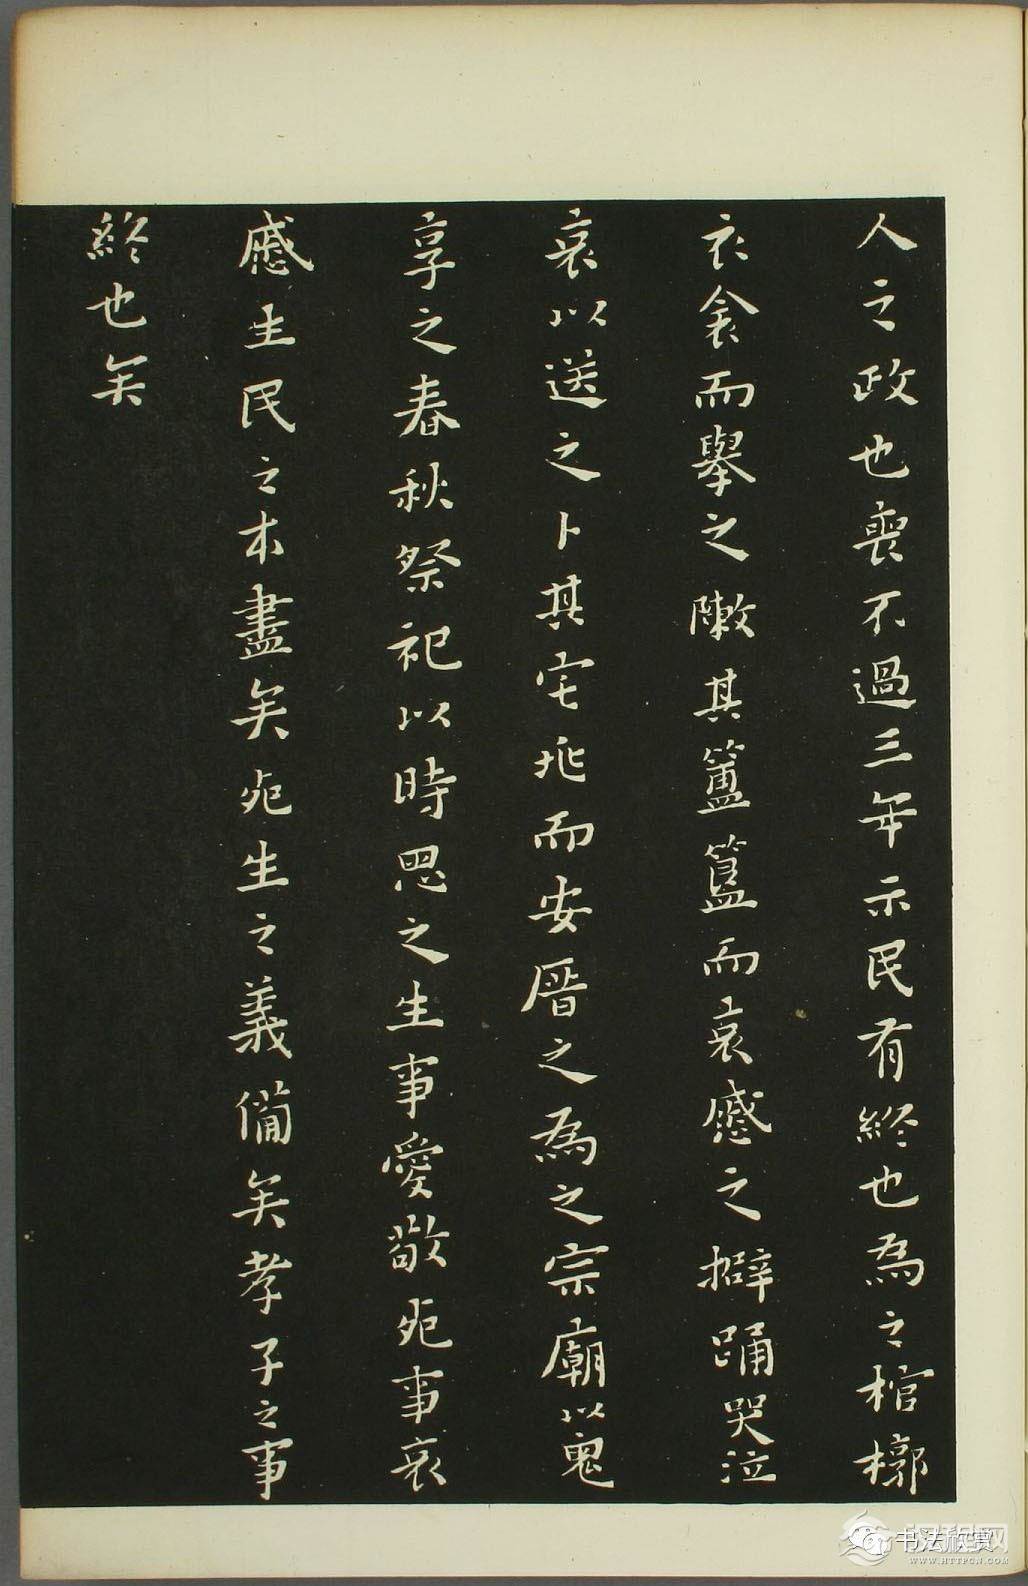 人之政也喪不過三年示民有終也為之棺槨
衣衾而舉之陳其簠簋而哀慼之擗踊哭泣
哀以送之卜其宅兆而安厝之為之宗廟以鬼
享之春秋祭祀以時思之生事愛敬死事哀
慼生民之本盡矣死生之義備矣孝子之事
終也矣
书法欣赏
WWW.HTTPCN.COM